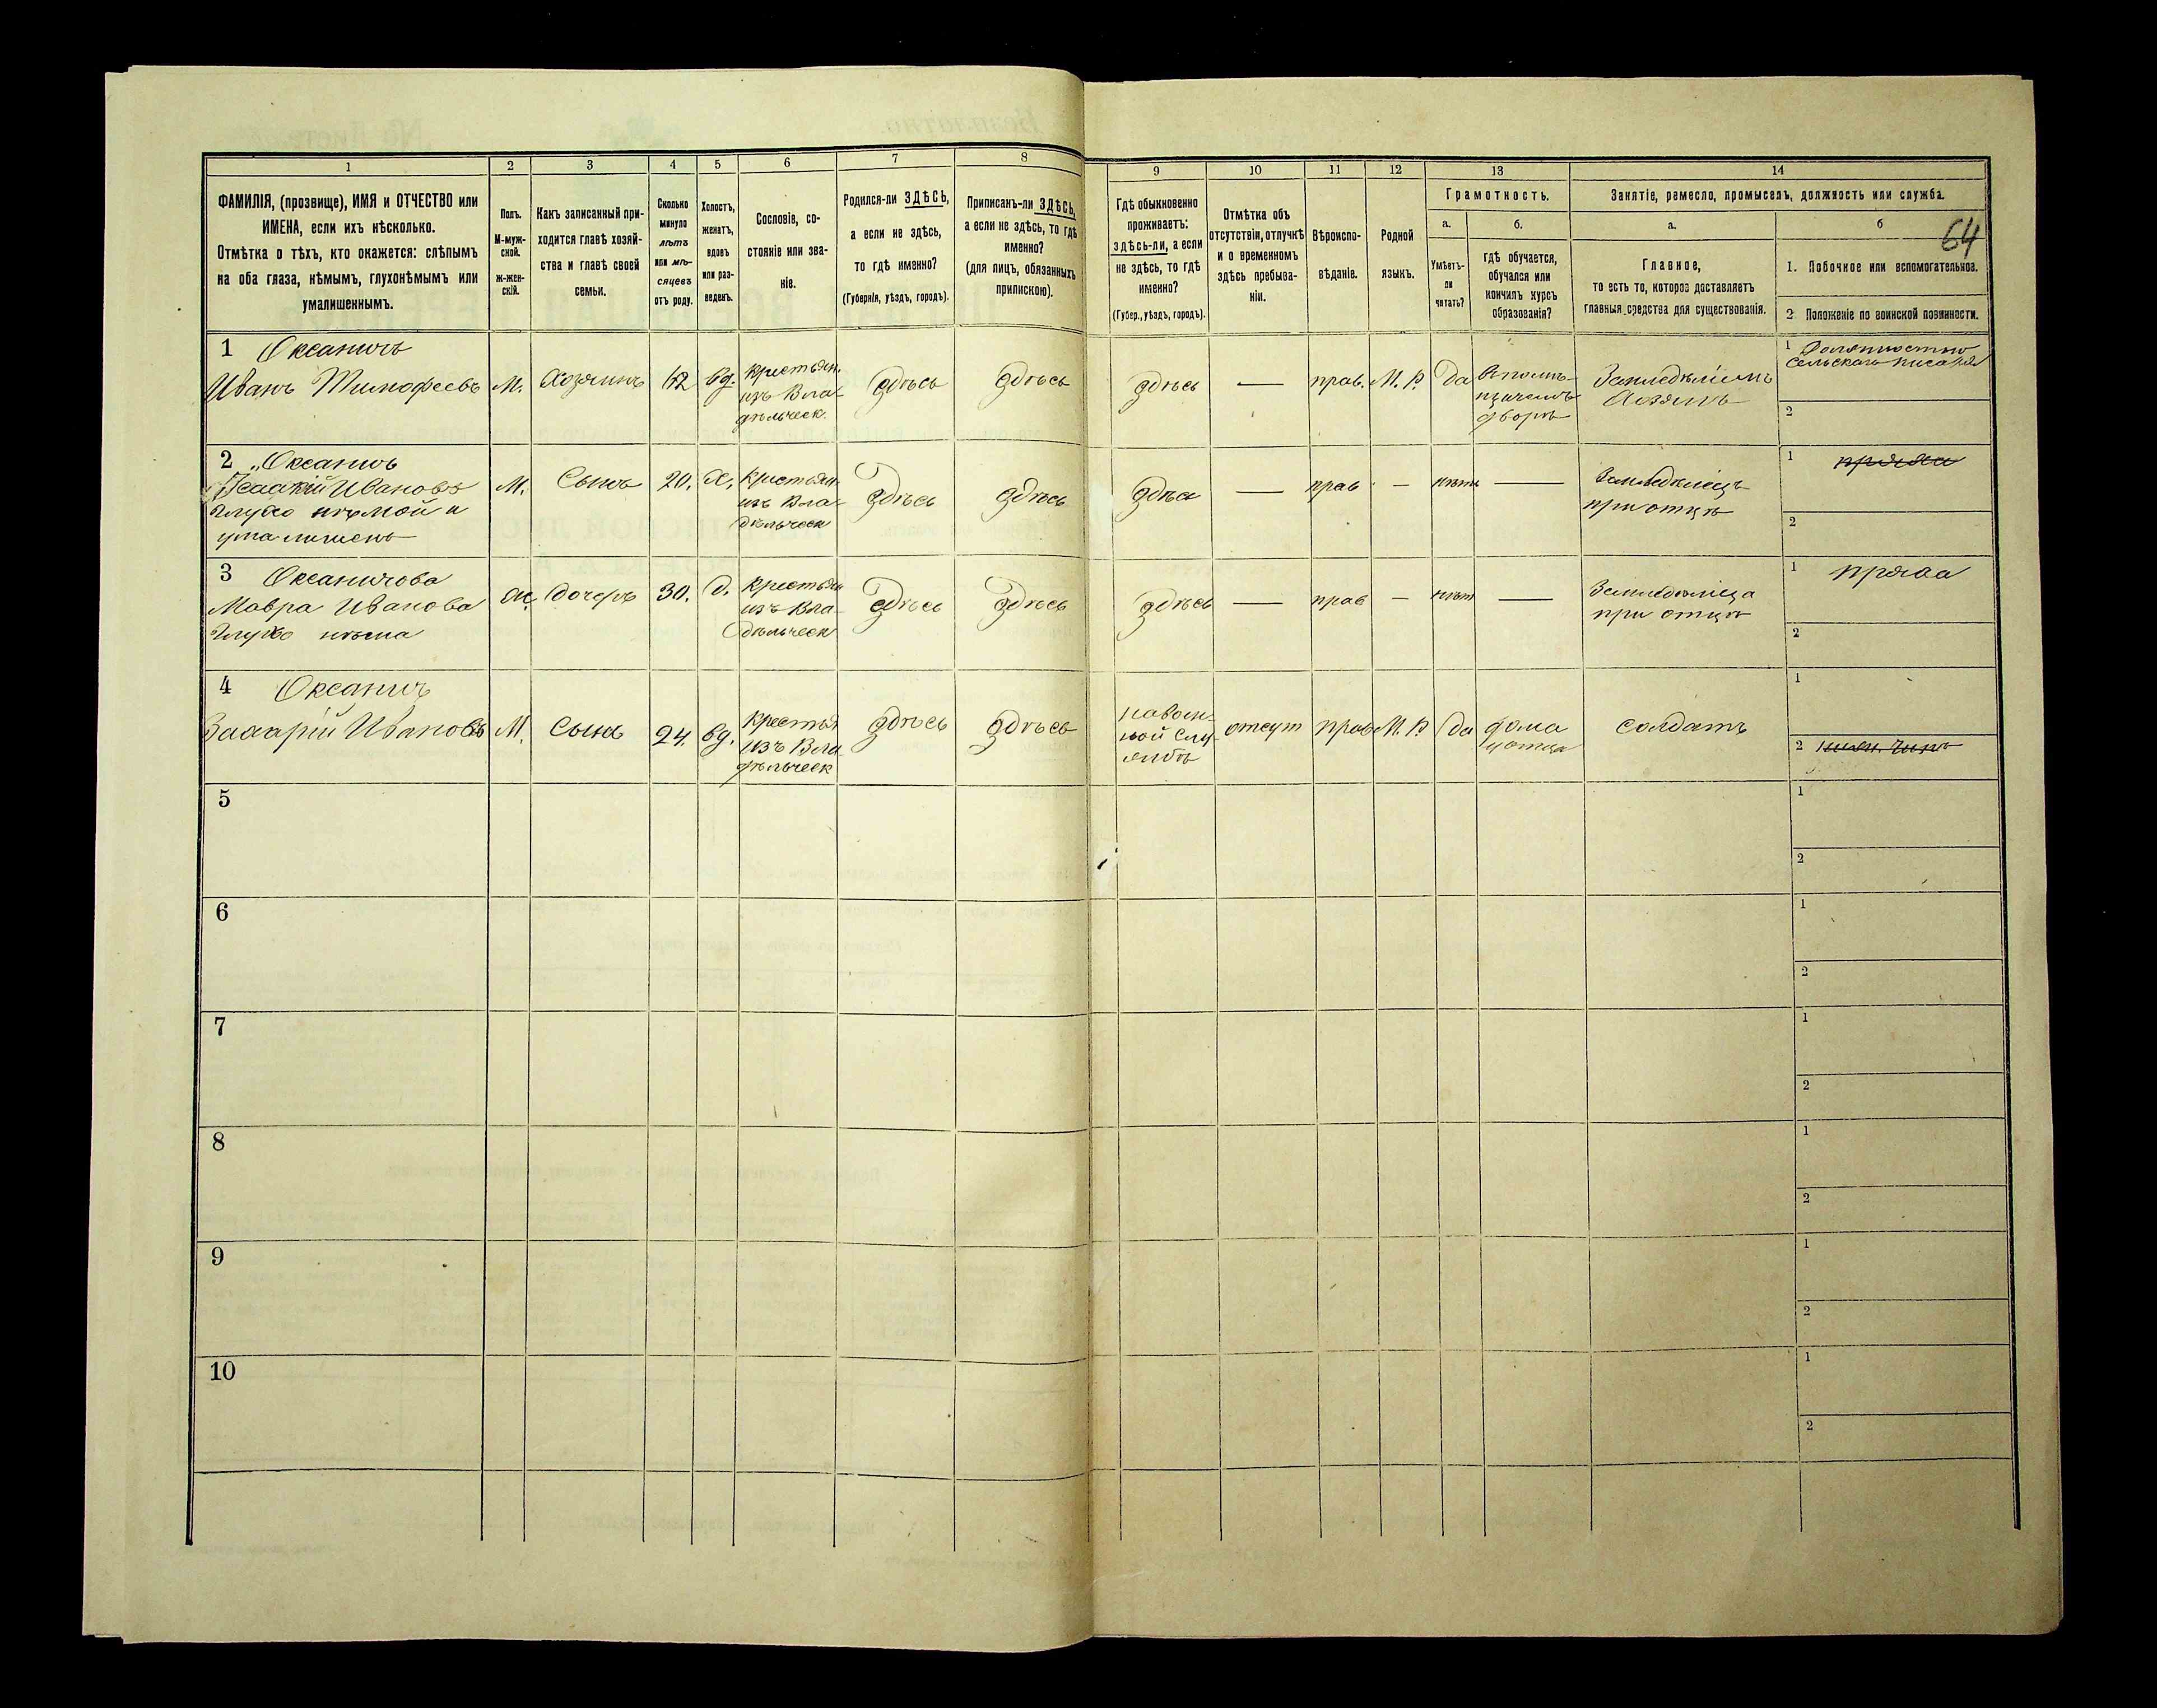 1
2
3
4
5
6
7
8
9
10
11
12
13
14
ФАМИЛІЯ, (прозвище), ИМЯ и ОТЧЕСТВО или
ИМЕНА, если ихъ нѣсколько.
Отмѣтка о тѣхъ, кто окажется: слѣпымъ
на оба глаза, нѣмымъ, глухонѣмымъ или
умалишеннымъ.
Полъ.
М-муж-
ской.
Ж-жен-
скій.
Какъ записанный при-
ходится главѣ хозяй-
ства и главѣ своей
семьи.
Сколько
минуло
лѣтъ
или мѣ-
сяцевъ
отъ роду.
Холостъ,
женатъ,
вдовъ
или раз-
веденъ.
Сословіе, со-
стояніе или зва-
ніе.
Родился-ли ЗДѢСЬ,
а если не здѣсь,
то гдѣ именно?
(Губернія, уѣздъ, городъ).
Приписанъ-ли ЗДѢСЬ,
а если не здѣсь, то гдѣ
именно?
(для лицъ, обязанныхъ
припискою).
Гдѣ обыкновенно
проживаетъ:
здѣсь-ли, а если
не здѣсь, то гдѣ
именно?
(Губер., уѣздъ, городъ).
Отмѣтка объ
отсутствіи, отлучкѣ
и о временномъ
здѣсь пребыва-
ніи.
Вѣроиспо-
вѣданіе.
Родной
языкъ.
Грамотность.
а.
Умѣетъ-
ли
читать?
б.
гдѣ обучается,
обучался или
кончилъ курсъ
образованія?
Занятіе, ремесло, промыселъ, должность или служба.
а.
Главное,
то есть то, которое доставляетъ
главныя средства для существованія.
б
64
1. Побочное или вспомогательное.
2 Положеніе по воинской повинности.
1 Оксаничъ
Иванъ Тимофеевъ
М.
Хозяинъ
62
вд.
крестьян.
изъ Вла-
дѣльческ.
здѣсь
здѣсь
здѣсь
—
прав.
М. Р.
Да
Хозяинъ
1
сельскаго писаря
2
2 Оксаничъ
Исаакій Ивановъ
Глухо нѣмой и
ума лишенъ
М.
Сынъ
20.
Х.
крестьян
изъ Вла-
дѣльческ
здѣсь
здѣсь
здѣсь
—
прав
—
нѣтъ
—
Земледѣлецъ
при отцѣ
1 пряха
2
3 Оксаничова
Мавра Иванова
Глухо нѣма
Ж.
дочерь
30.
Д.
крестьян
изъ Вла-
дѣльческ
здѣсь
здѣсь
здѣсь
—
прав
—
нѣт
—
Земледѣлица
при отцѣ
1 пряха
2
4 Оксанич
Захарій Ивановъ
М.
Сынъ
24.
вд.
крестья
изъ Вла
дѣльческ
здѣсь
здѣсь
на воен-
ной слу-
жбѣ
отсут
прав
М. Р
Да
дома
у отца
солдатъ
1
2 нижн. чинъ
5
1
2
6
1
2
7
1
2
8
1
2
9
1
2
10
1
2